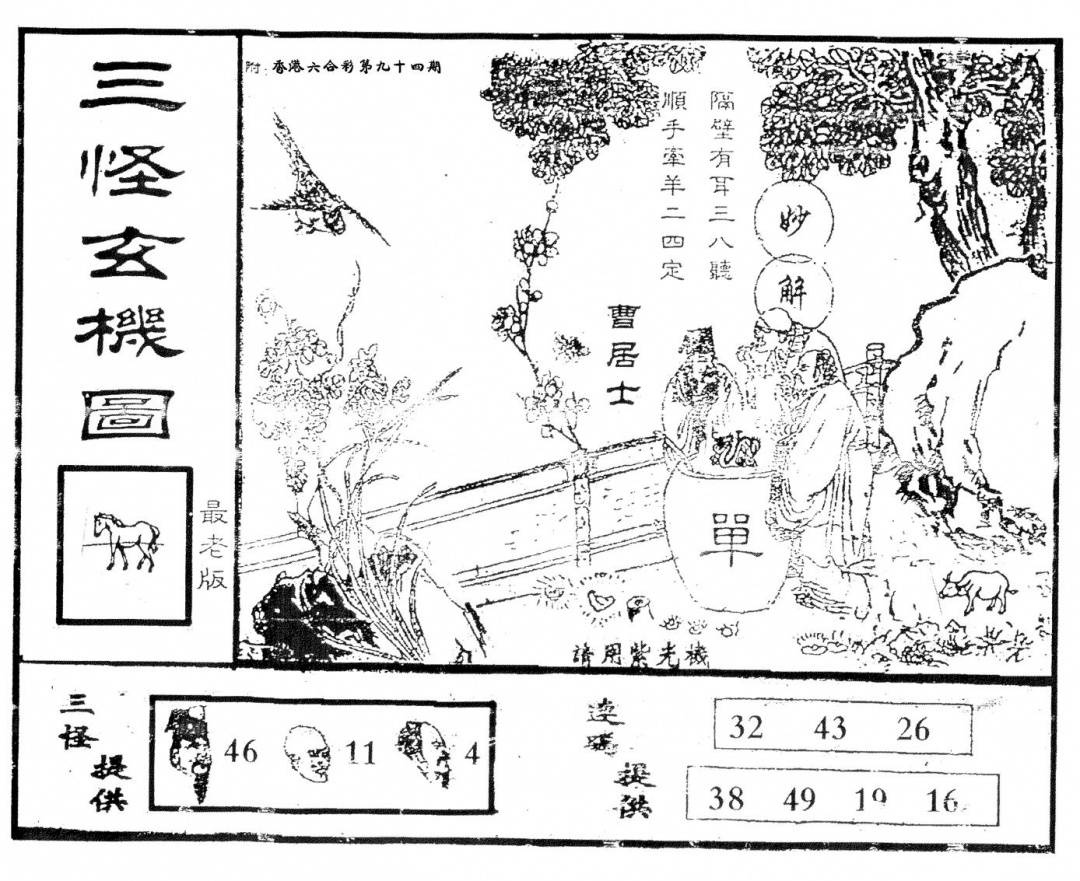 三怪玄機圖
最老版
附:香港六合彩第九十四期
隔壁有耳三八聽
順手牽羊二四定
妙解
曹居士
單
請用紫光機
三怪提供
46 11 4
連碼提供
32 43 26
38 49 19 16